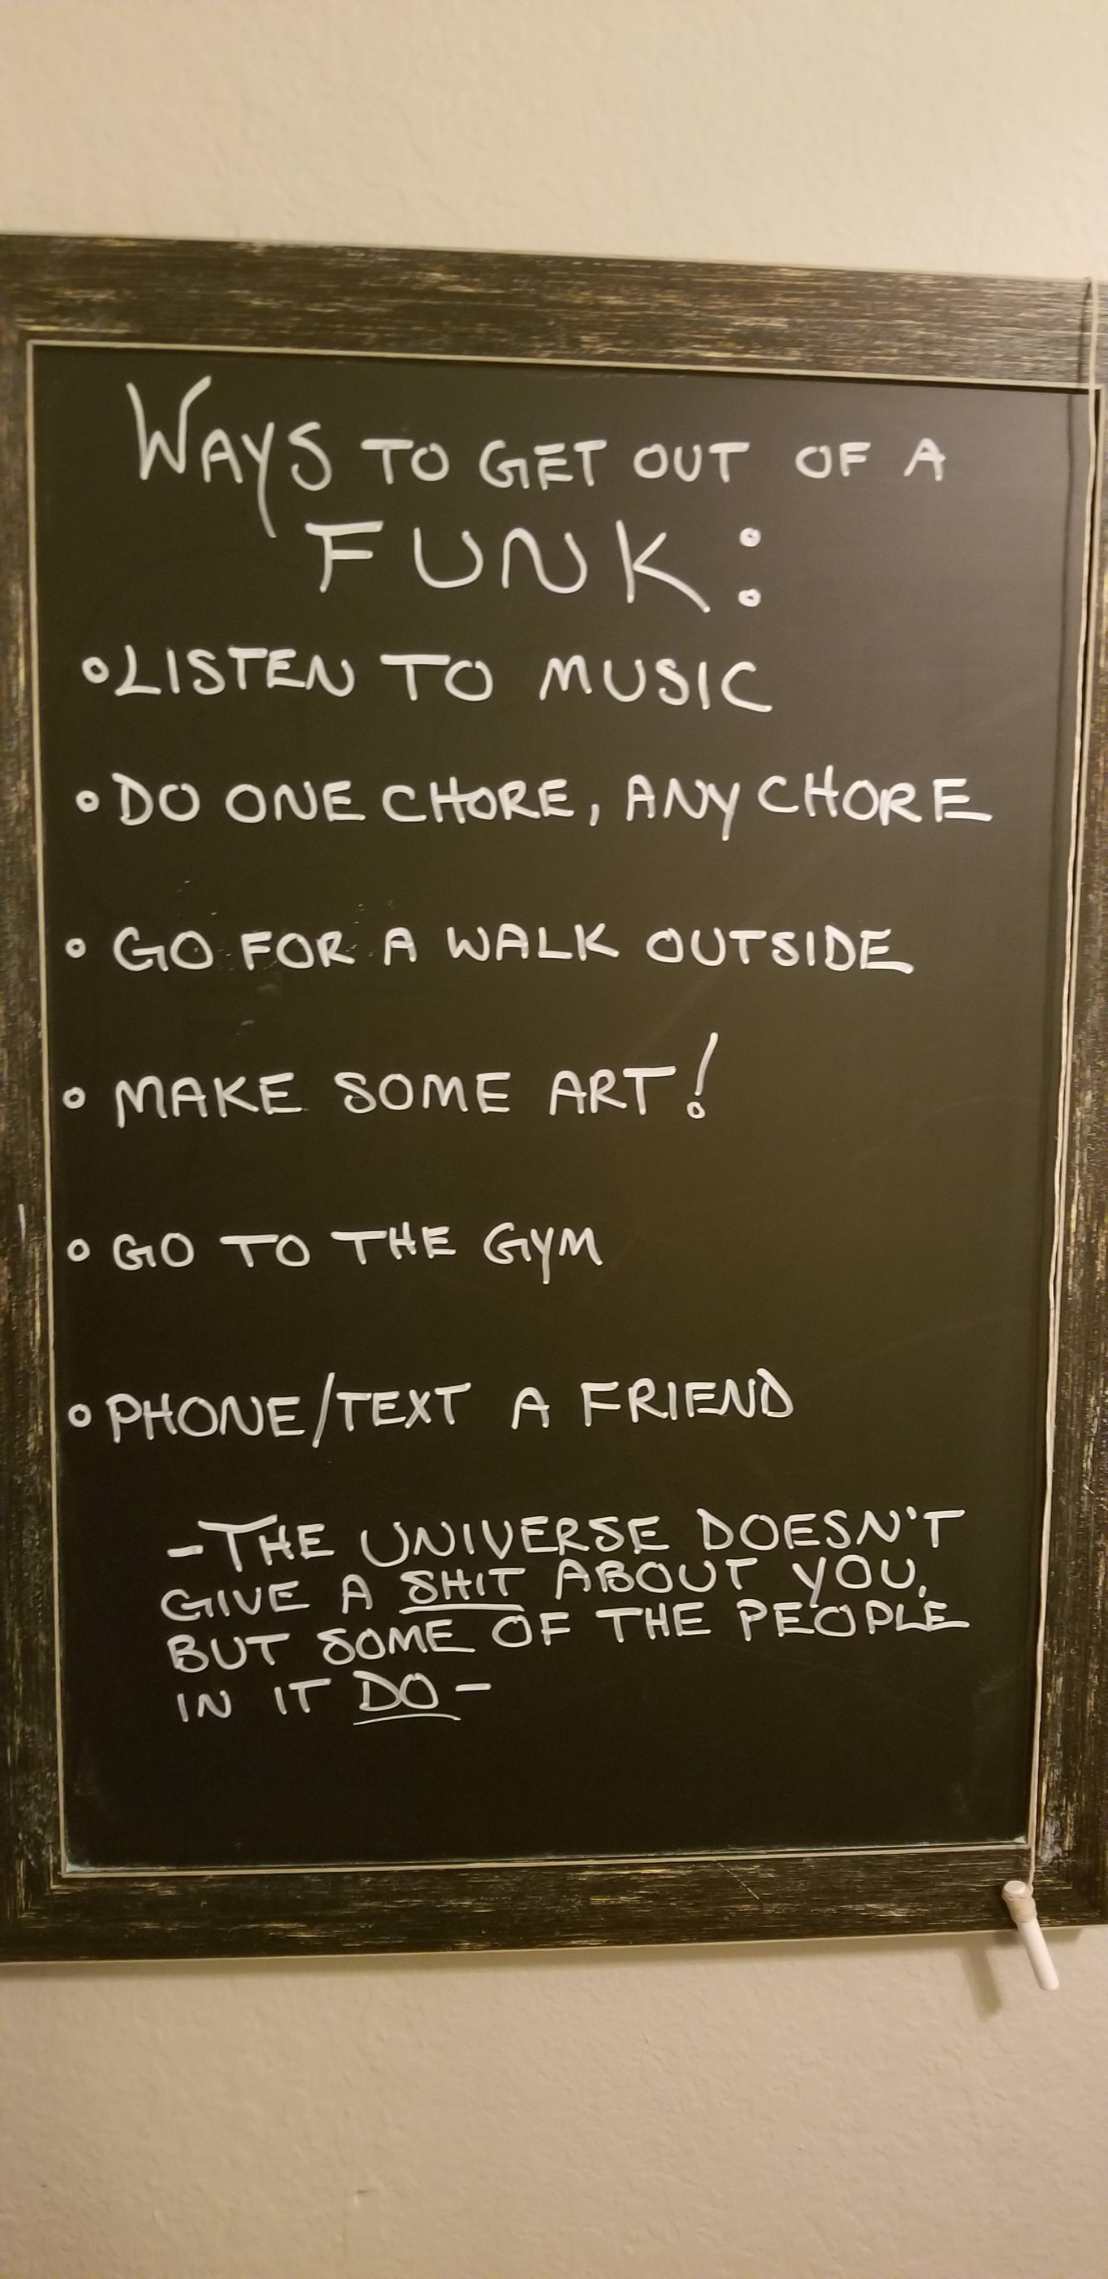 WAYS TO GET OUT OF A
FUNK:
• LISTEN TO MUSIC
• DO ONE CHORE, ANY CHORE
• GO FOR A WALK OUTSIDE
• MAKE SOME ART!
• GO TO THE GYM
• PHONE/TEXT A FRIEND
- THE UNIVERSE DOESN'T
GIVE A SHIT ABOUT YOU,
BUT SOME OF THE PEOPLE
IN IT DO -